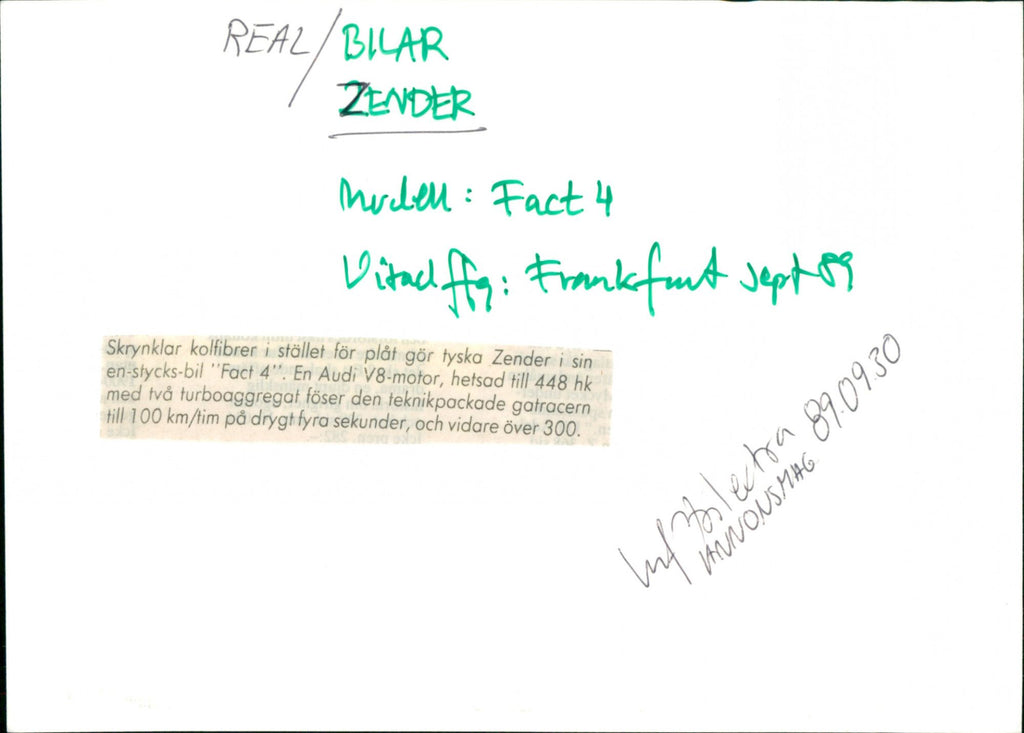 REAL / BILAR
ZENDER
Modell: Fact 4
Visad ffg: Frankfurt sept 89
Skrynklar kolfibrer i stället för plåt gör tyska Zender i sin
en-stycks-bil "Fact 4". En Audi V8-motor, hetsad till 448 hk
med två turboaggregat föser den teknikpackade gatracern
till 100 km/tim på drygt fyra sekunder, och vidare över 300.
89.09.30
ANNONSMAG